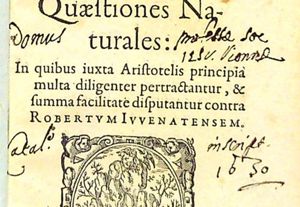 Quæstiones Na-
Domus
turales:
Soc
In quibus iuxta Aristotelis principia
multa diligenter pertractantur, &
summa facilitate disputantur contra
ROBERTVM IVVENATENSEM.
inscript
1630